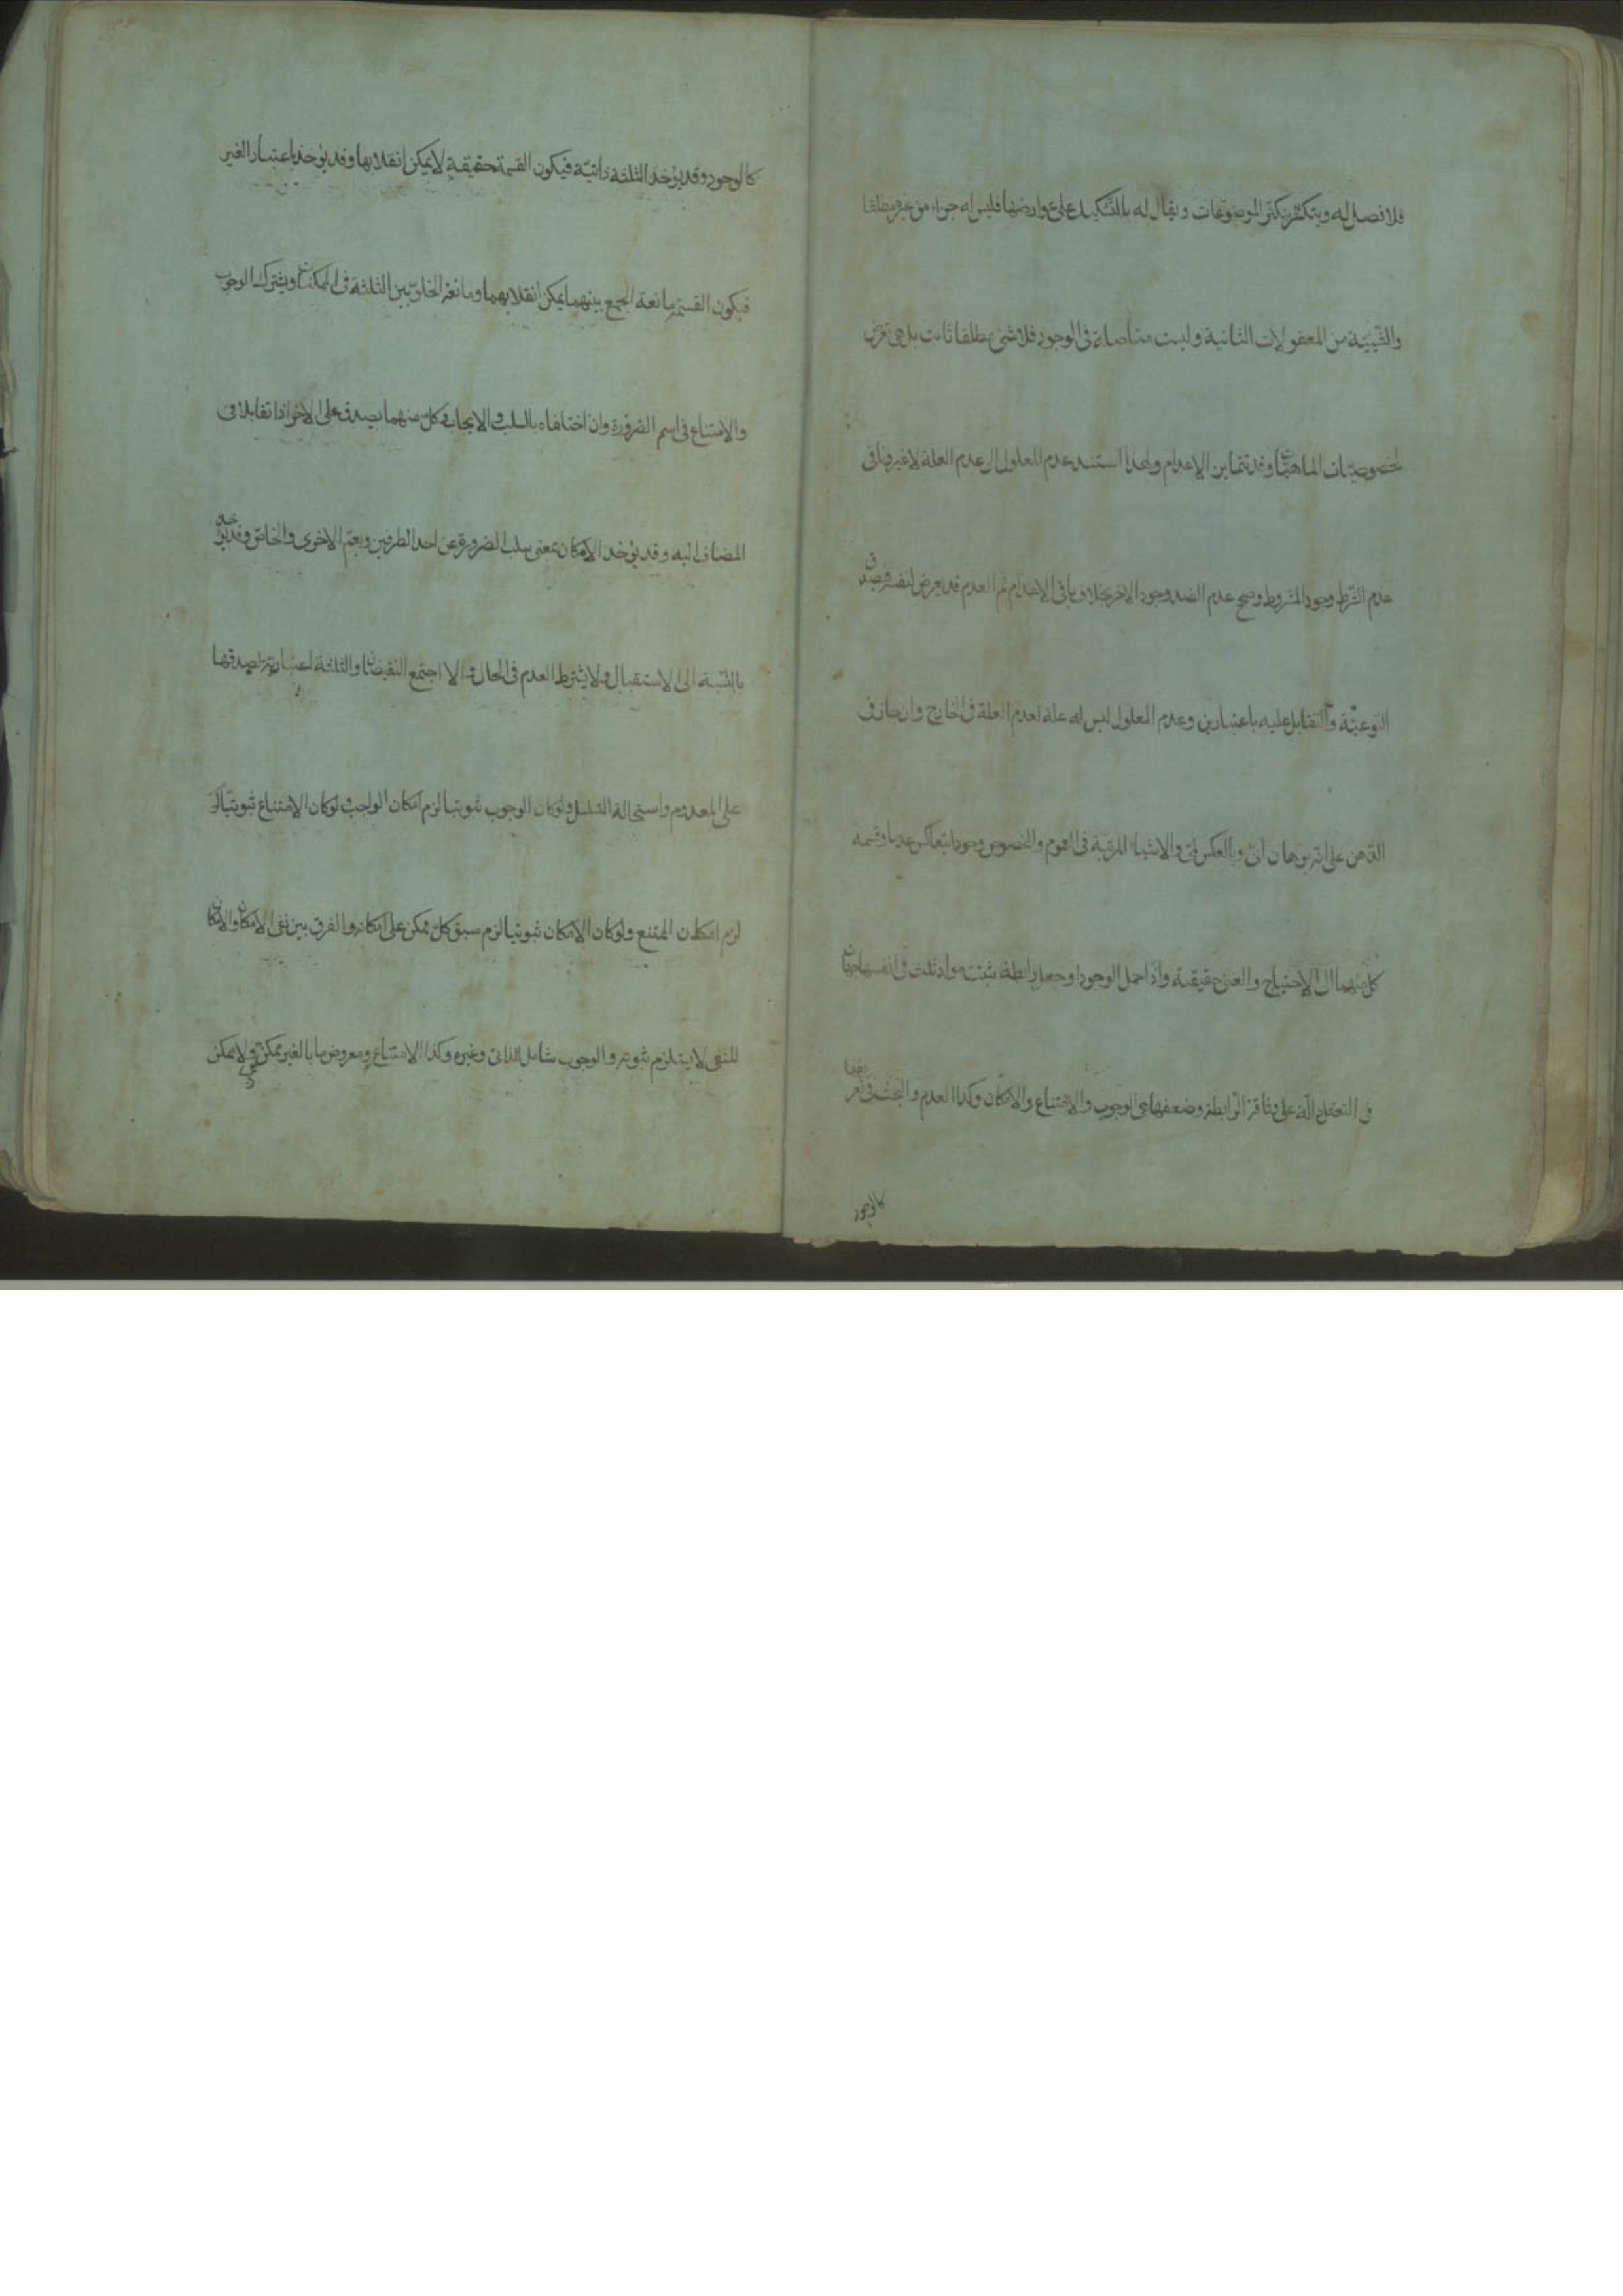 فلا فصل له ويتكثر بتكثر الموضوعات ويقال له بالتشكيك على عوارضها فليس له جزءا من غيره مطلقا
والشيئية من المعقولات الثانية وليست متأصلة فى الوجود فلا شئ مطلقا ثابت بل هى تعرض
لخصوصيات الماهيات وقد تتمايز الاعدام ولهذا استند عدم المعلول الى عدم العلة لا غير ونافى
عدم الشرط وجود المشروط وصحح عدم الضد وجود الاخر بخلاف باقى الاعدام ثم العدم قد يعرض لنفسه فيصدق
النوعية والتقابل عليه باعتبارين وعدم المعلول ليس له علة لعدم العلة فى الخارج وان جاز فى
الذهن على انه برهان انى وبالعكس لمى والاشياء المرتبة فى العموم والخصوص وجودا يتعاكس عدما وقسمة
كل منهما الى الاحتياج والغنى حقيقية واذا حمل الوجود او جعل رابطة يثبت مواد ثلث فى انفسها جهات
فى التعقل دالة على وثاقة الرابطة وضعفها هى الوجوب والامتناع والامكان وكذا العدم والبحث فى تعريفها
كالوجود
كالوجود وقد يؤخذ الثلثة ذاتية فيكون القسمة حقيقية لا يمكن انقلابها وقد يؤخذ باعتبار الغير
فيكون القسمة مانعة الجمع بينهما يمكن انقلابهما ومانعة الخلو بين الثلثة فى الممكنات ويشترك الوجوب
والامتناع فى اسم الضرورة وان اختلفا بالسلب والايجاب وكل منهما يصدق على الاخر اذا تقابلا فى
المضاف اليه وقد يؤخذ الامكان بمعنى سلب الضرورة عن احد الطرفين ويعم الاخرى والخاص وقد يؤخذ
بالنسبة الى الاستقبال ولا يشترط العدم فى الحال والا اجتمع النقيضان والثلثة اعتبارية لصدقها
على المعدوم واستحالة التسلسل ولو كان الوجوب ثبوتيا لزم امكان الواجب ولو كان الامتناع ثبوتيا
لزم امكان الممتنع ولو كان الامكان ثبوتيا لزم سبق كل ممكن على امكانه والفرق بين نفى الامكان والامكان
للنفى لا يستلزم ثبوته والوجوب شامل للذاتى وغيره وكذا الامتناع ومعروض ما بالغير ممكن ولا ممكن